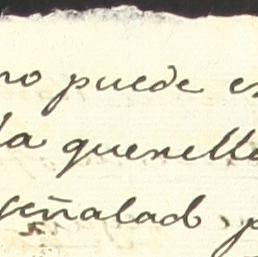 no puede es
la querella
señalad. p